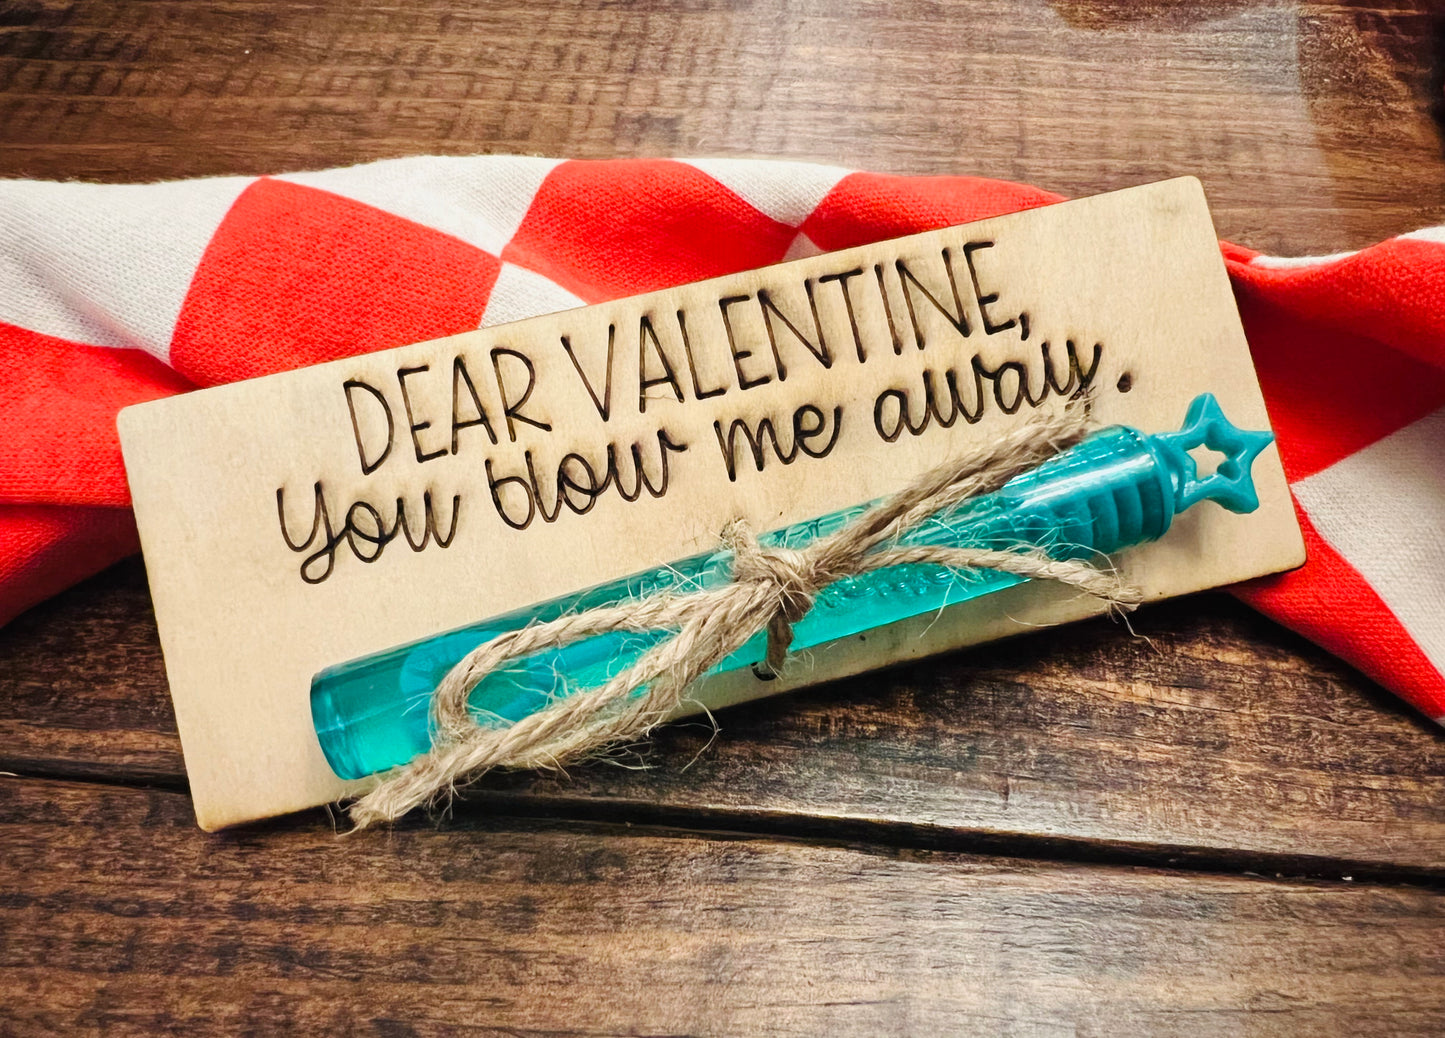 DEAR VALENTINE,
you blow me away.